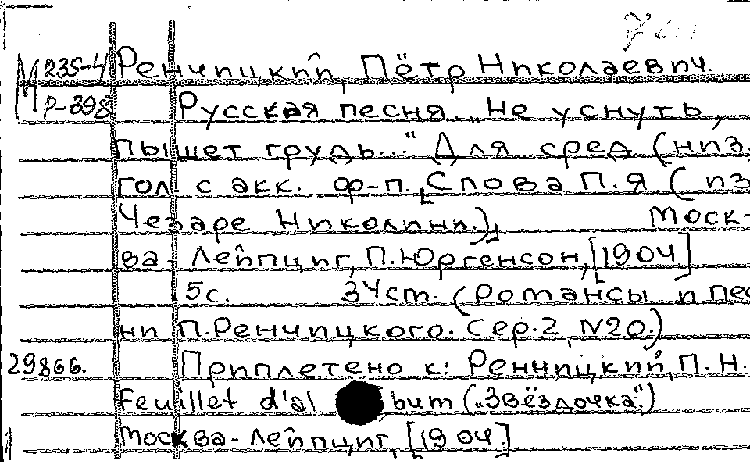 М 235-4 Ренчицкий, Пётр Николаевич.
Р-398 Русская песня „Не уснуть,
пышет грудь..." Для сред (низ.
гол с акк. ф-п. [Слова П.Я ( из
Чезаре Николини.)] Моск-
ва-Лейпциг, П.Юргенсон, [1904]
5с. 34 cm. (Романсы и пес
ни П.Ренчицкого. Сер.2, №20.)
29866. Приплетено к: Ренчицкий, П.Н.
Feuillet d'album („Звёздочка".)
Москва-Лейпциг [1904.]